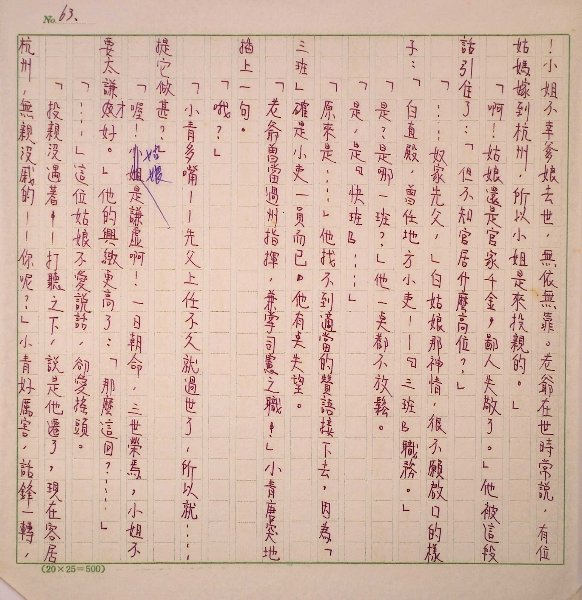 No. 63.
！小姐不幸爹娘去世，無依無靠。老爺在世時常說，有位
姑媽嫁到杭州，所以小姐是來投親的。」
「啊！姑娘還是官家千金，鄙人失敬了。」他被這段
話引住了：「但不知官居什麼高位？」
「……奴家先父，」白姑娘那神情，很不願啟口的樣
子：「白直殿，曾任地方小吏——『三班』職務。」
「是？是哪一班？」他一莫都不放鬆。
「是，是『快班』……」
「原來是……」他找不到適當的贊語接下去，因為「
三班」確是小吏一員而已。他有莫失望。
「老爺曾當過州指揮，兼掌司憲之職！」小青唐突地
插上一句。
「哦？」
「小青多嘴——先父上任不久就過世了，所以就……
提它做甚？」
「喔！小姐姑娘是謙虛啊！一日朝命，三世榮焉，小姐不
要太謙才好。」他的興緻更高了：「那麼這回？……」
「……」這位姑娘不愛說話，卻愛搖頭。
「投親沒遇著！——打聽之下，說是他遷了，現在客居
杭州，無親沒戚的——你呢？」小青好厲害，話鋒一轉，
(20×25=500)